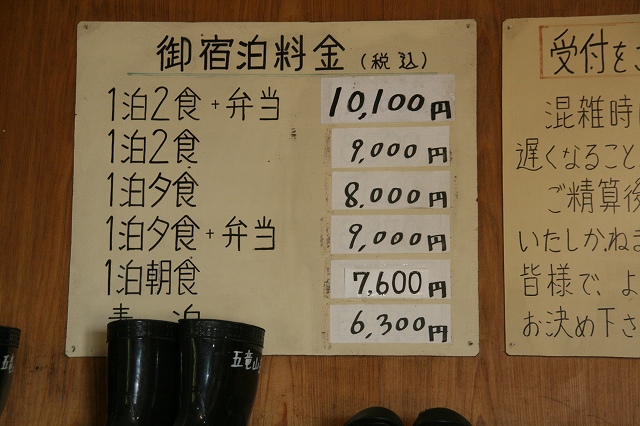 御宿泊料金(税込)
1泊2食+弁当 10,100円
1泊2食 9,000円
1泊夕食 8,000円
1泊夕食+弁当 9,000円
1泊朝食 7,600円
素泊 6,300円
受付を
混雑時
遅くなること
ご精算後
いたしかねま
皆様で、よ
お決め下さ
五竜山